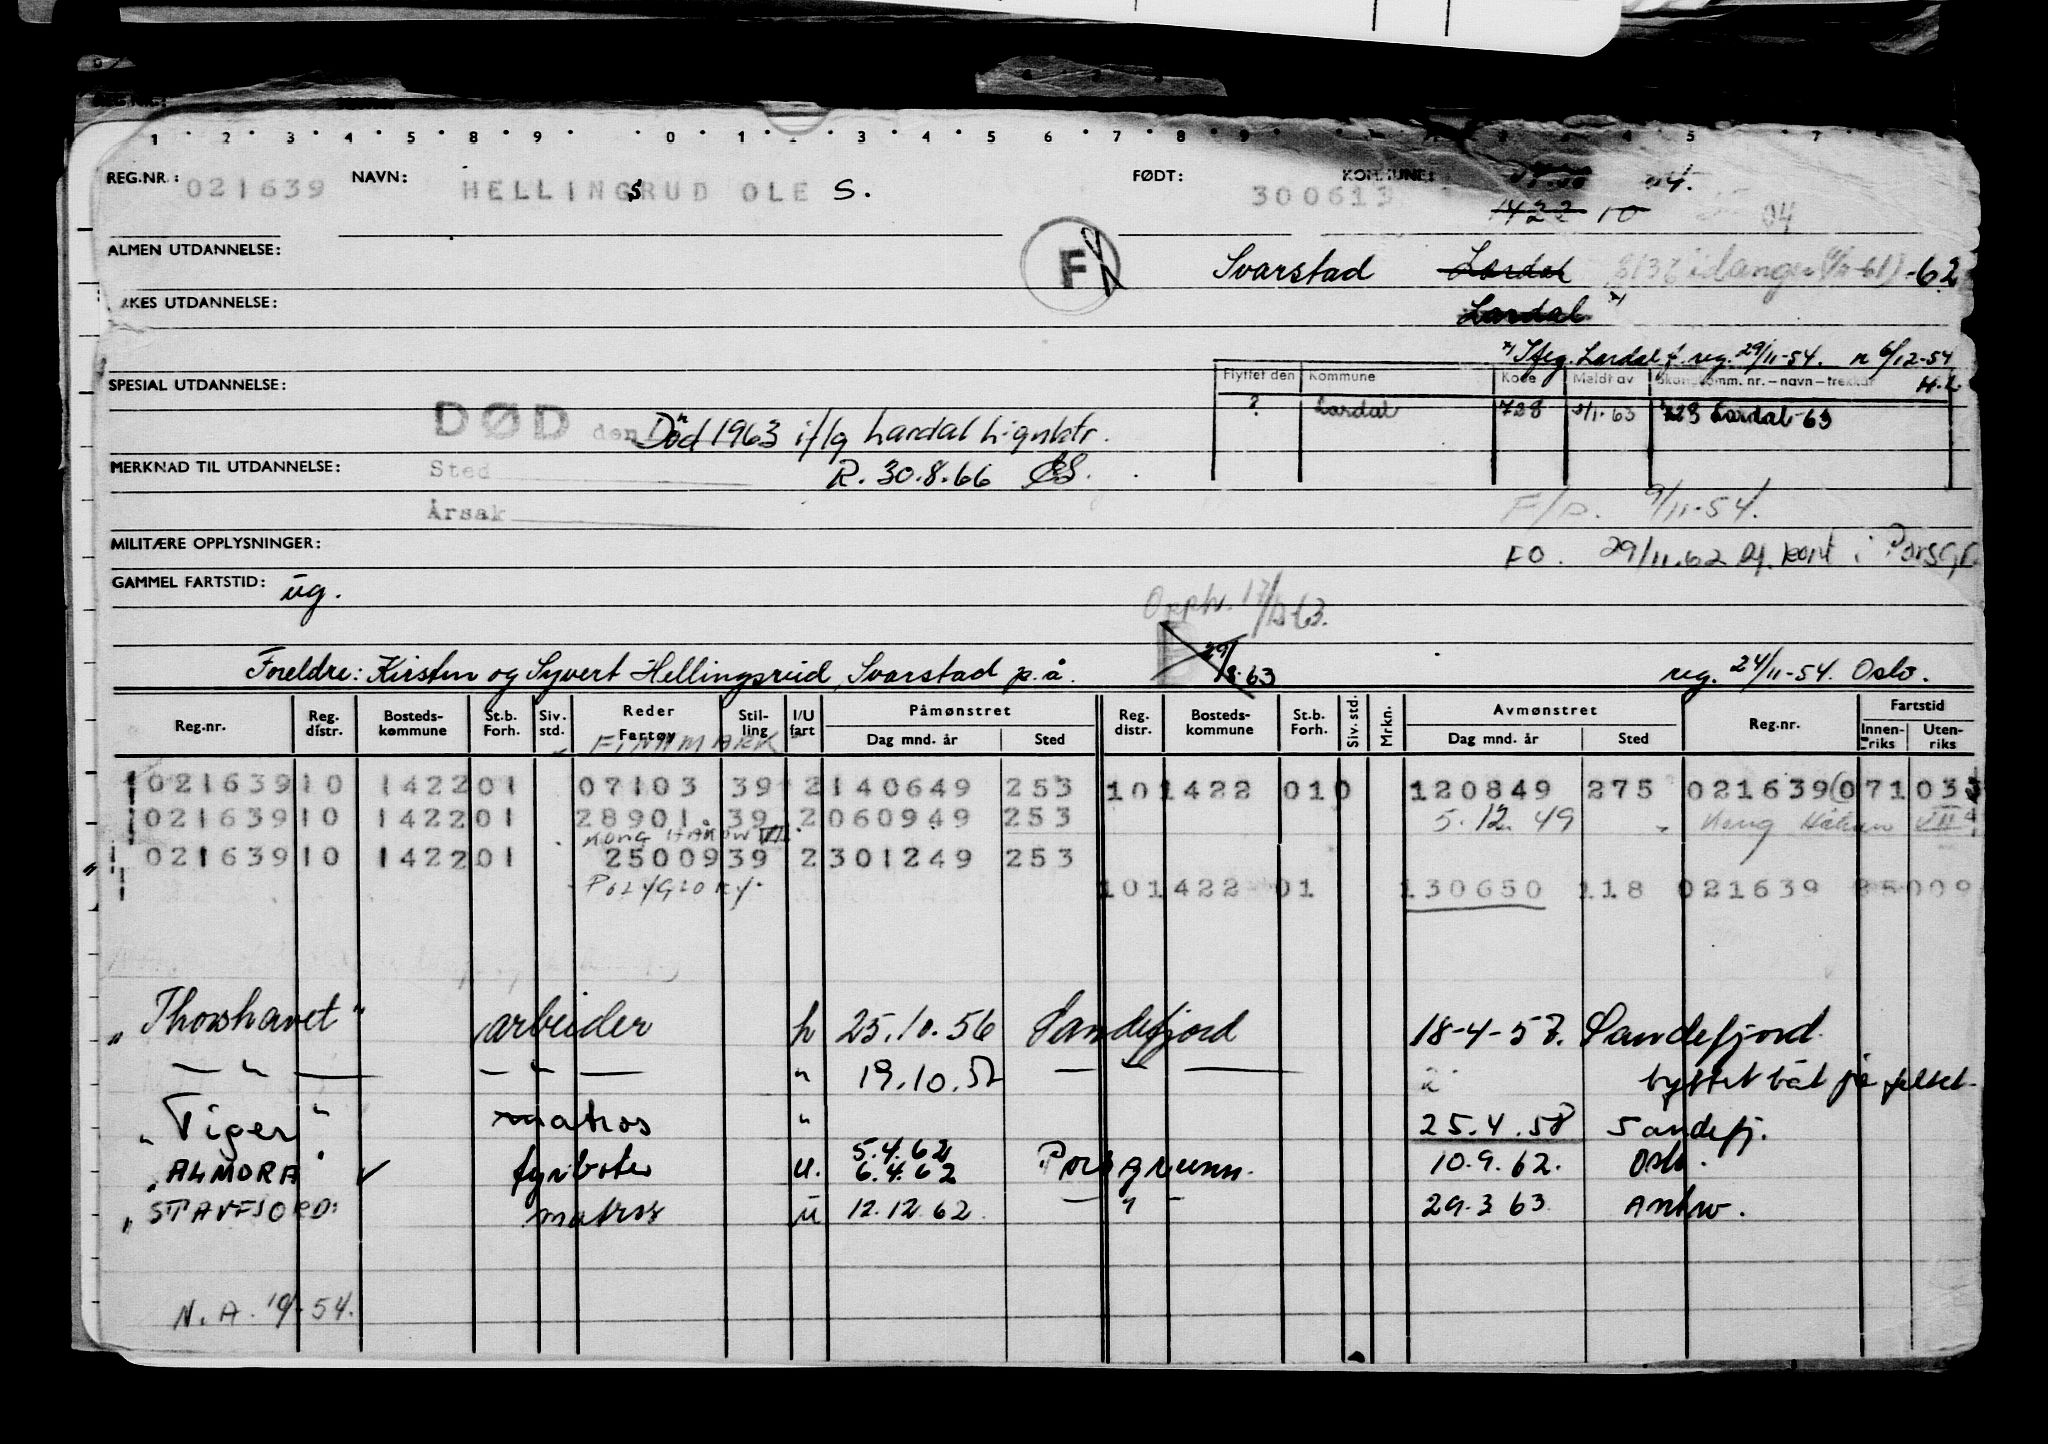 REG.NR.: 021639 NAVN: HELLINGSRUD OLE S. FØDT: 300613 KOMMUNE:
1422 10 04
ALMEN UTDANNELSE:
F
Svarstad Lardal -62
YRKES UTDANNELSE:
Lardal x)
x) Iflg. Lardal f. reg. 29/11-54. 6/12-54
SPESIAL UTDANNELSE:
Flyttet den Kommune Kode Meldt av Skattekomm. nr.-navn-trekkår
? Lardal 728 2/1-63 728 Lardal-63
DØD den Død 1963 iflg Lardal Lignktr.
MERKNAD TIL UTDANNELSE: Sted R. 30.8.66
Årsak F/D. 9/11-54.
MILITÆRE OPPLYSNINGER: FO. 29/11.62 Mj. kont i Porsgr.
GAMMEL FARTSTID: ug.
Opph. 17/
29/8.63
Foreldre: Kirsten og Syvert Hellingsrud, Svarstad p.å. reg. 24/11-54. Oslo.
Reg.nr. Reg. distr. Bosteds-kommune St.b. Forh. Siv. std. Reder Fartøy Stil-ling I/U fart Påmønstret Dag mnd. år Sted Reg. distr. Bosteds-kommune St.b. Forh. Siv. std. Mrkn. Avmønstret Dag mnd. år Sted Reg.nr. Fartstid Innen-riks Uten-riks
FINNMARK
021639 10 1422 01 07103 39 2 140649 253 10 1422 01 0 120849 275 021639 07103
021639 10 1422 01 28901 39 2 060949 253 5.12.49 Kong Håkon VII
KONG HAKON VII
021639 10 1422 01 25009 39 2 301249 253
POLYGLORY 10 1422 01 130650 118 021639 25009
"Thorshavet" arbeider h 25.10.56 Sandefjord 18-4-57. Sandefjord.
— " — — " — " 19.10.57 — " — byttet båt på feltet.
"Tiger" matros " 25.4.58 Sandefj.
5.4.62
"ALMORA" ✓ fyrbøter u. 6.4.62 Porsgrunn. 10.9.62. Oslo.
"STAVFJORD" matros u 12.12.62 — " — 29.3.63 Antw.
N.A. 19/ -54.